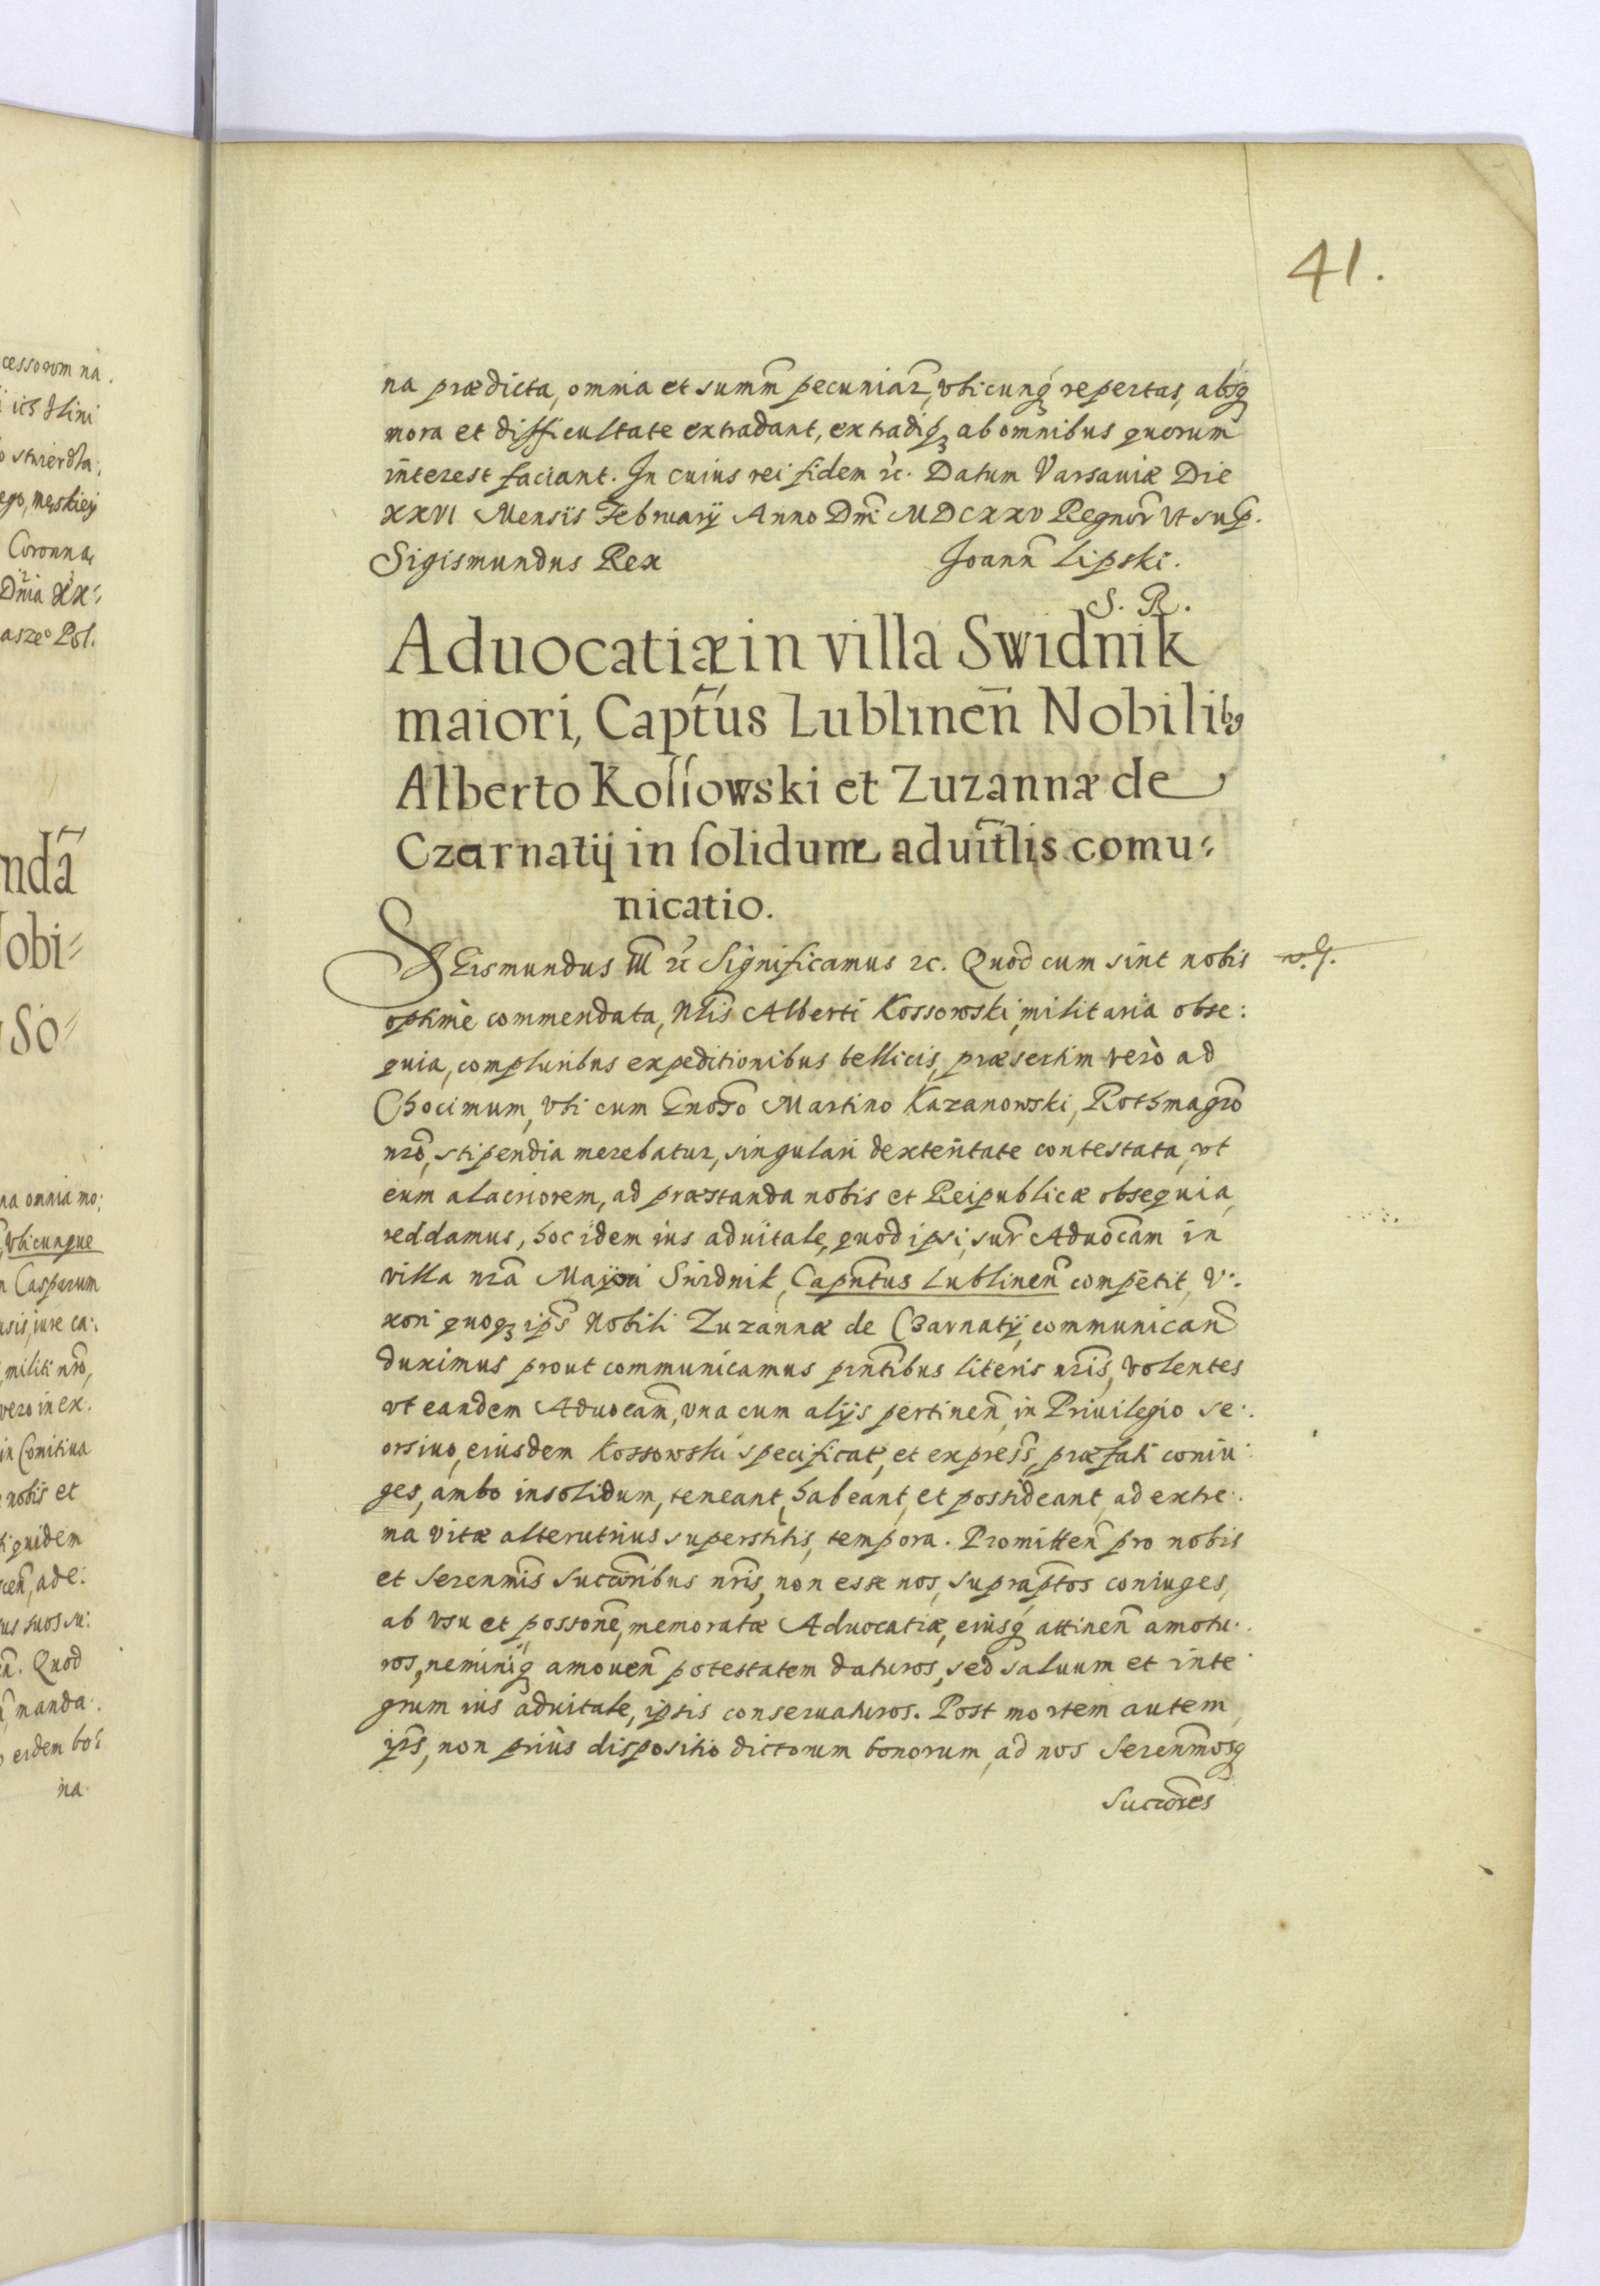 41.
na prædicta, omnia et summ̃ pecuniar̃, vbicunq́ repertas, absq́
mora et difficultate extradant, extradiq́ ab omnibus quorum
interest faciant. In cuius rei fidem ꝛc. Datum Varsaviæ Die
XXVI Mensis February Anno Dñi MDCXXV Regnor̃ vt sup̃.
Sigismundus Rex Joann̄ Lipski.
S. R.
Aduocatiæ in villa Swidnik
maiori, Capt̃us Lublineñ Nobilibꝯ
Alberto Kossowski et Zuzannæ de
Czarnatÿ in solidum aduit̃lis comu:
nicatio.
Sigismundus III ꝛc Significamus ꝛc. Quod cum sint nobis
optimè commendata, Nl̃is Alberti Kossowski, militaria obse:
quia, compluribus expeditionibus bellicis, præsertim verò ad
Chocimum, vbi cum Gnõso Martino Kazanowski, Rothmagr̃o
nr̃o, stipendia merebatur, singulari dexteritate contestata, vt
eum alacriorem, ad præstanda nobis et Reipublicæ obsequia,
reddamus, hoc idem ius aduitale, quod ipsi, sup̃ Aduõcam in
villa nr̃a Majori Swidnik, Capñtus Lublineñ competit, V:
xori quoqꝫ ip̃s Nobili Zuzannæ de Czarnatÿ, communicañ
duximus prout communicamus prñtibus literis nr̃is, volentes
vt eandem Aduocañ, vna cum alÿs pertineñ, in Priuilegio se:
orsiuo, eiusdem Kossowski specificat̃, et express̃, præfati coniu:
ges, ambo insolidum, teneant, habeant, et possideant, ad extre:
ma vitæ alterutrius superstitis, tempora. Promitteñ pro nobis
et Serenm̃is Succõribus nr̃is, non esse nos, suprap̃tos coniuges,
ab vsu et possõne, memoratæ Aduocatiæ, eiusq́ attineñ amotu:
ros, neminiq́ amoueñ potestatem daturos, sed saluum et inte
grum ius aduitale, ipsis conseruaturos. Post mortem autem,
ip̃s, non priùs dispositio dictorum bonorum, ad nos Serenm̃osq́
Succõres